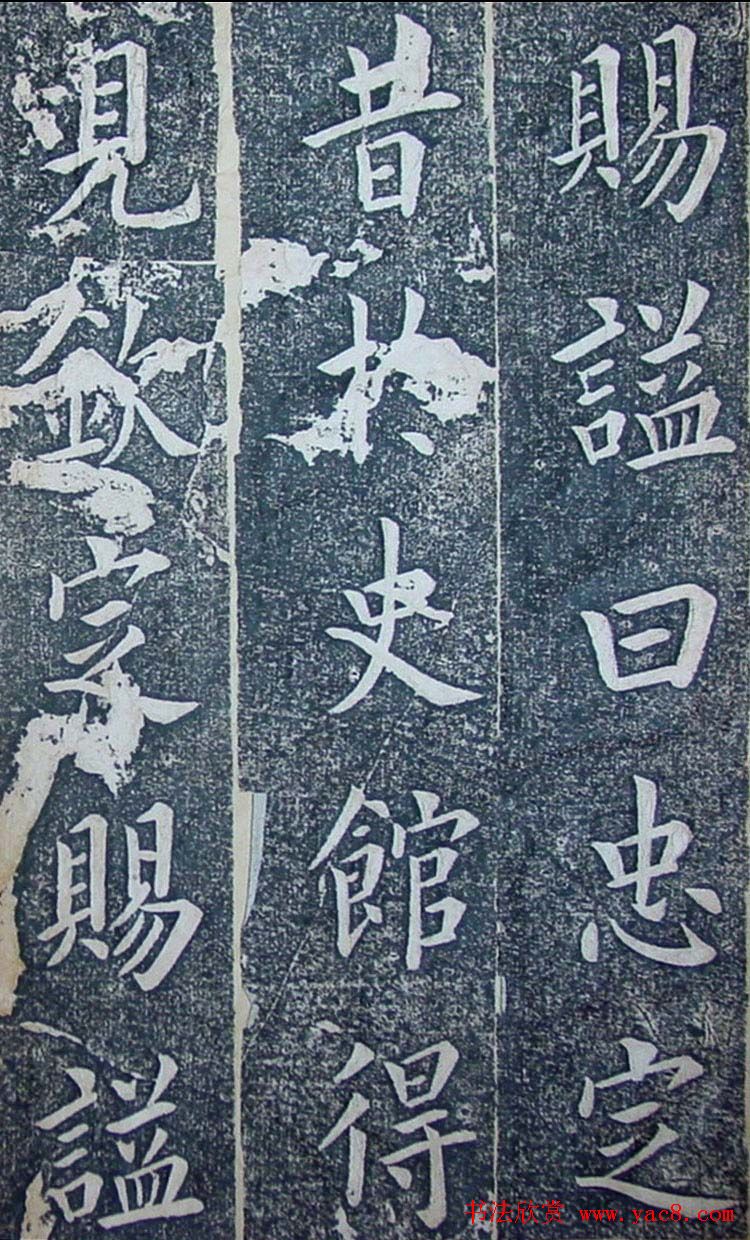 賜謚曰忠定
昔於史館得
見欽定賜謚
书法欣赏 www.yac8.com